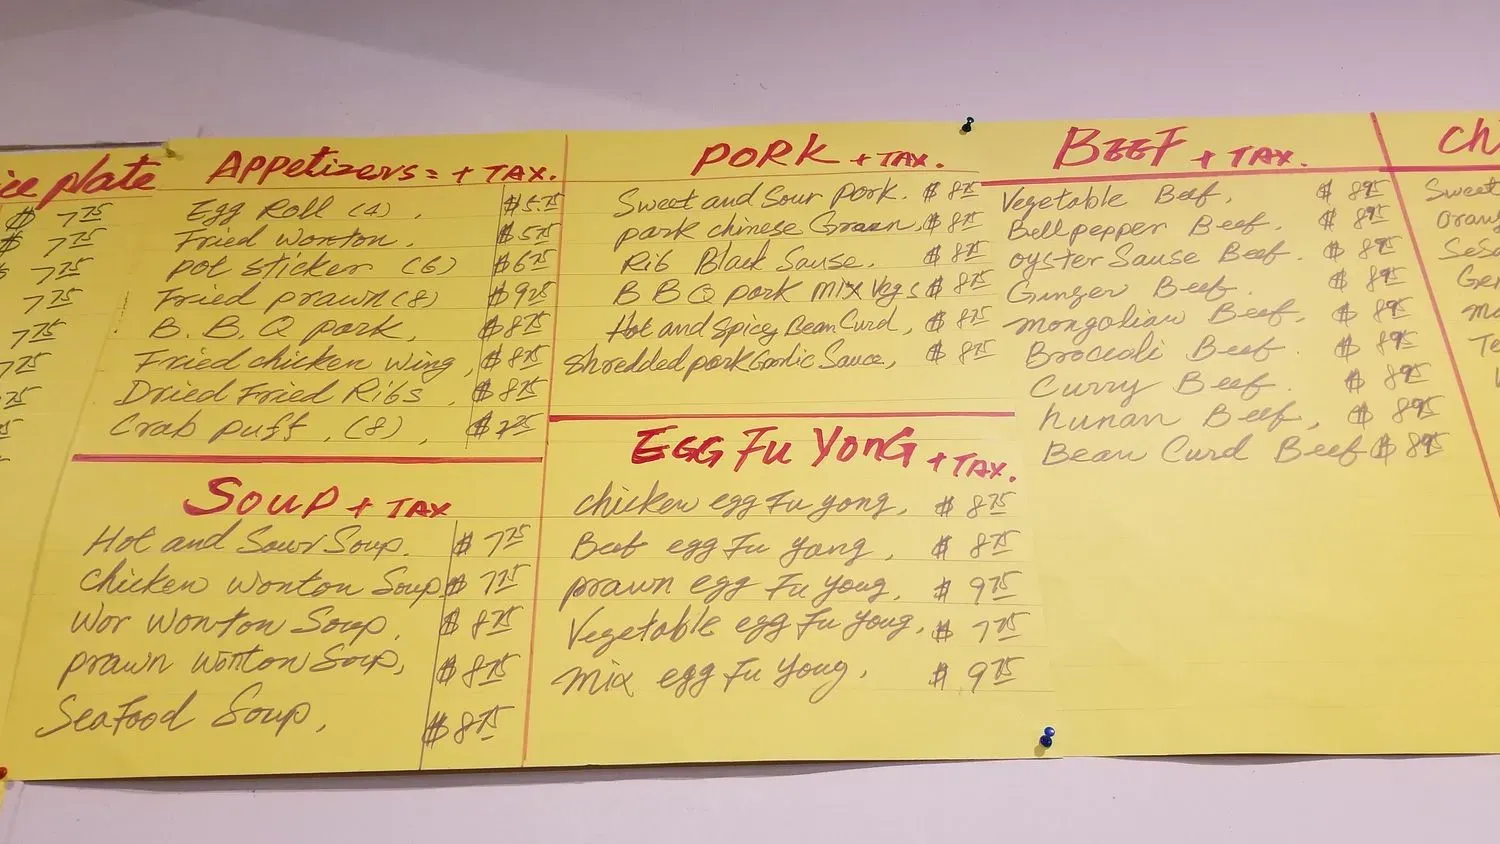 ice plate
$ 7.75
$ 7.75
$ 7.75
7.75
7.75
7.75
Appetizers: + TAX.
Egg Roll (4), $5.75
Fried wonton, $5.75
pot sticker (6) $6.75
Fried prawn (8) $9.25
B.B.Q pork, $8.75
Fried chicken wing, $8.75
Dried Fried Ribs, $8.75
Crab puff, (8),
Soup + TAX
Hot and Sour Soup. $ 7.75
Chicken wonton Soup $ 7.75
Wor wonton Soup, $ 8.75
prawn wonton Soup, $ 8.75
Seafood Soup, $ 8.75
PORK + TAX.
Sweet and Sour pork. $ 8.75
pork chinese Green, $ 8.75
Rib Black Sause. $ 8.75
B B Q pork mix Vegs $ 8.75
Hot and Spicy Bean Curd, $ 8.75
shredded pork Garlic Sauce, $ 8.75
EGG FU YONG + TAX.
chicken egg Fu yong, $ 8.75
Beef egg Fu yong, $ 8.75
prawn egg Fu yong, $ 9.75
Vegetable egg Fu yong, $ 7.75
mix egg Fu Yong, $ 9.75
BEEF + TAX.
Vegetable Beef, $ 8.95
Bell pepper Beef. $ 8.95
oyster Sause Beef. $ 8.95
Ginger Beef. $ 8.95
mongolian Beef, $ 8.95
Broccoli Beef. $ 8.95
Curry Beef. $ 8.95
hunan Beef, $ 8.95
Bean Curd Beef $ 8.95
Ch
Sweet
Orang
Sesa
Ge
m
Te